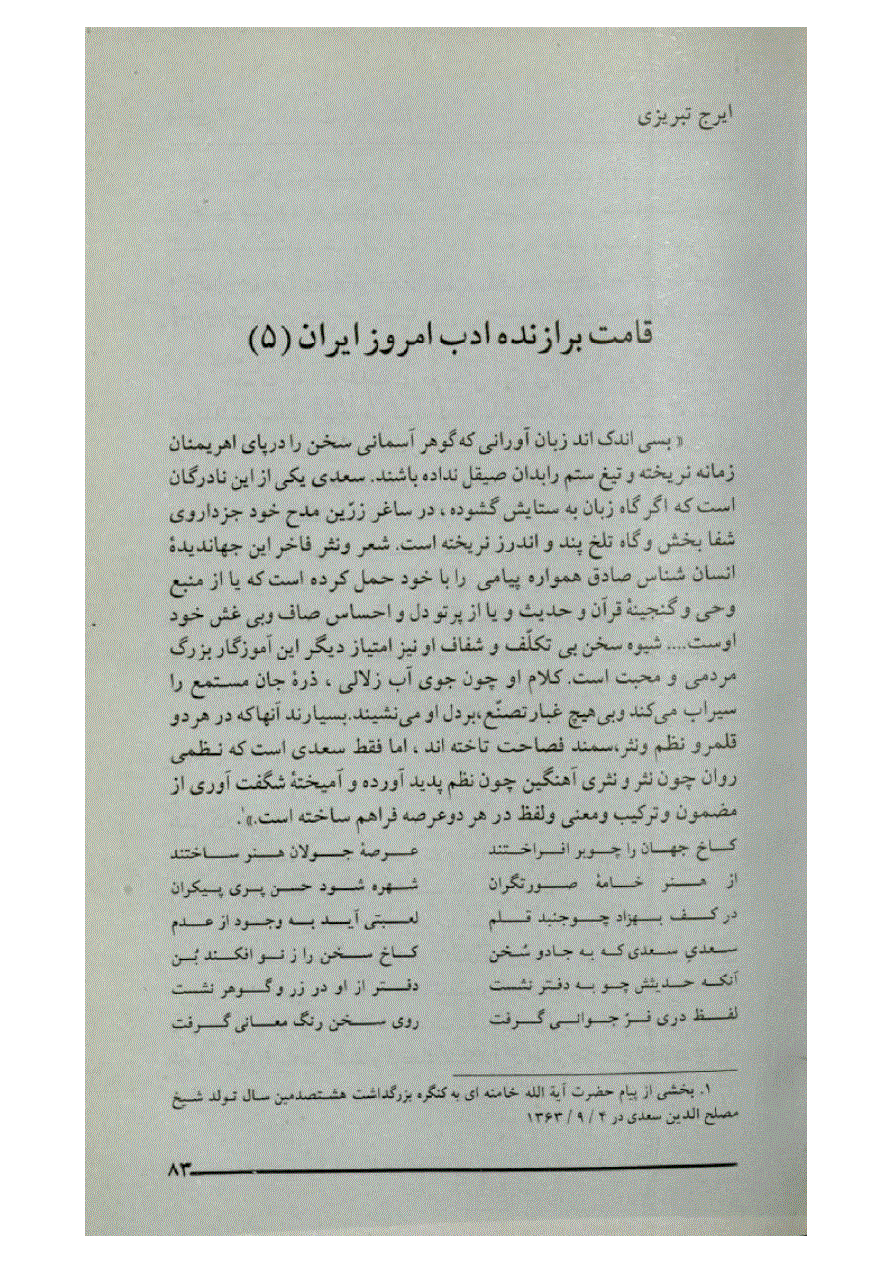 ایرج تبریزی
قامت برازنده ادب امروز ایران (۵)
« بسی اندک اند زبان آورانی که گوهر آسمانی سخن را درپای اهریمنان
زمانه نریخته و تیغ ستم رابدان صیقل نداده باشند. سعدی یکی از این نادرگان
است که اگر گاه زبان به ستایش گشوده ، در ساغر زرّین مدح خود جزداروی
شفا بخش و گاه تلخ پند و اندرز نریخته است. شعر ونثر فاخر این جهاندیدهٔ
انسان شناس صادق همواره پیامی را با خود حمل کرده است که یا از منبع
وحی و گنجینهٔ قرآن و حدیث و یا از پرتو دل و احساس صاف وبی غش خود
اوست.... شیوه سخن بی تکلّف و شفاف او نیز امتیاز دیگر این آموزگار بزرگ
مردمی و محبت است. کلام او چون جوی آب زلالی ، ذرهٔ جان مستمع را
سیراب می‌کند وبی‌هیچ غبار تصنّع،بردل او می‌نشیند.بسیارند آنهاکه در هر دو
قلمرو نظم ونثر،سمند فصاحت تاخته اند ، اما فقط سعدی است که نظمی
روان چون نثر و نثری آهنگین چون نظم پدید آورده و آمیختهٔ شگفت آوری از
مضمون وترکیب ومعنی ولفظ در هر دوعرصه فراهم ساخته است.»۱.
کاخ جهان را چوبر افراختند عرصهٔ جولان هنر ساختند
از هنر خامهٔ صورتگران شهره شود حسن پری پیکران
در کف بهزاد چوجنبد قلم لعبتی آید به وجود از عدم
سعدیِ سعدی که به جادو سُخن کاخ سخن را ز نو افکند بُن
آنکه حدیثش چو به دفتر نشست دفتر از او در زر و گوهر نشست
لفظ دری فرّ جوانی گرفت روی سخن رنگ معانی گرفت
۱. بخشی از پیام حضرت آیة الله خامنه ای به کنگره بزرگداشت هشتصدمین سال تولد شیخ
مصلح الدین سعدی در ۴ / ۹ / ۱۳۶۳
۸۳